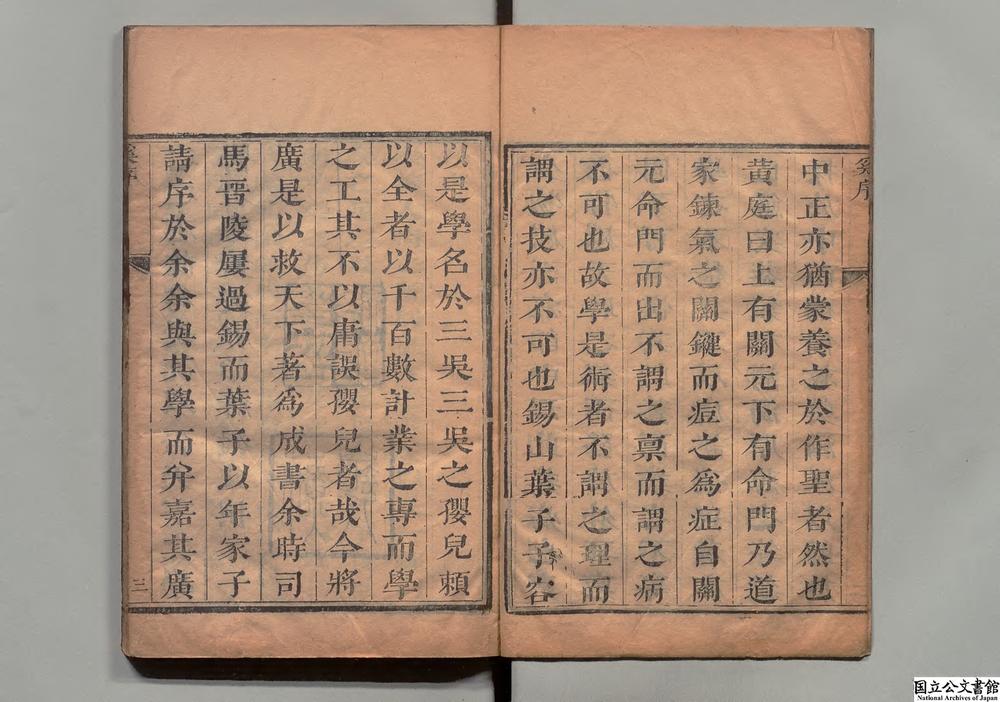 奚序
中正亦猶蒙養之於作聖者然也
黃庭曰上有關元下有命門乃道
家鍊氣之關鍵而痘之爲症自關
元命門而出不謂之稟而謂之病
不可也故學是術者不謂之理而
謂之技亦不可也錫山葉子子容
以是學名於三吳三吳之孾兒賴
以全者以千百數計業之專而學
之工其不以庸誤孾兒者哉今將
廣是以救天下著爲成書余時司
馬晋陵屢過錫而葉子以年家子
請序於余余與其學而弁嘉其廣
奚序
三
国立公文書館
National Archives of Japan